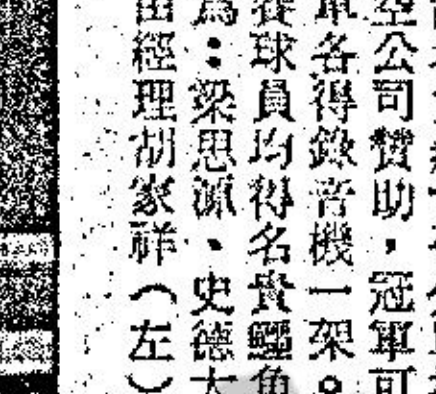 空公司贊助，冠軍可
軍各得錄音機一架。
賽球員均得名貴鱷角
為：梁思源、史德大
由經理胡家祥（左）